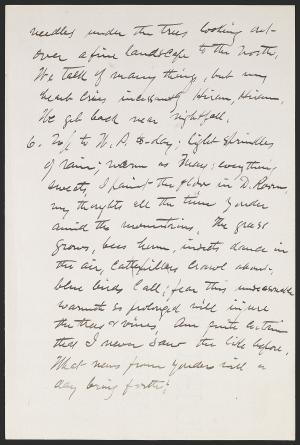 needles under the trees looking out
over a fine landscape to the North.
We talk of many things, but my
heart cries incessantly Hiram, Hiram.
We get back near nightfall.
6. Off to W. P. to-day; light sprinkles
of rain; warm as May; everything
sweats, I paint the floor in D. Room,
my thoughts all the time yonder
amid the mountains. The grass
grows, bees hum, insects dance in
the air, Catepillars crawl about
blue birds Call; fear this unseasonable
warmth so prolonged will injure
the trees & vines, Am quite certain
that I never saw the like before.
What news from yonder will a
day bring forth!